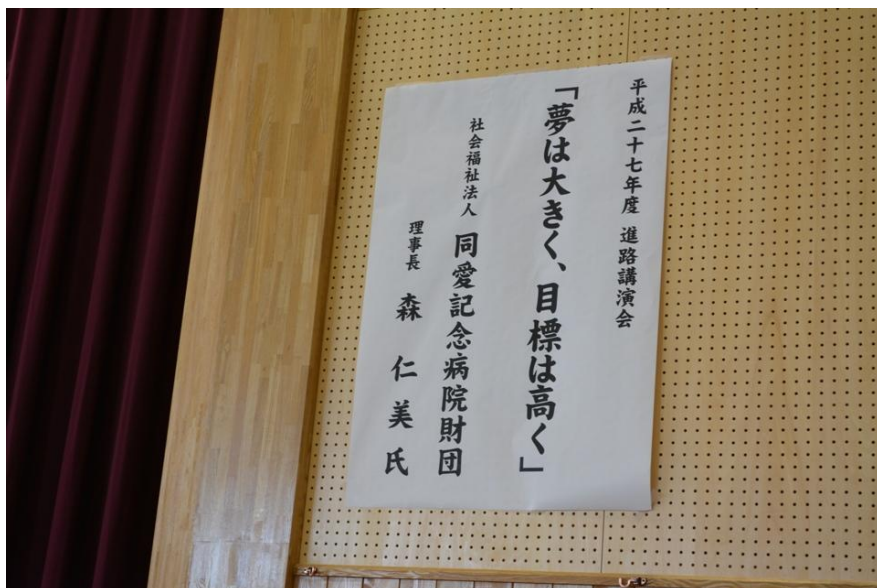 平成二十七年度 進路講演会
「夢は大きく、目標は高く」
社会福祉法人 同愛記念病院財団
理事長 森 仁 美 氏